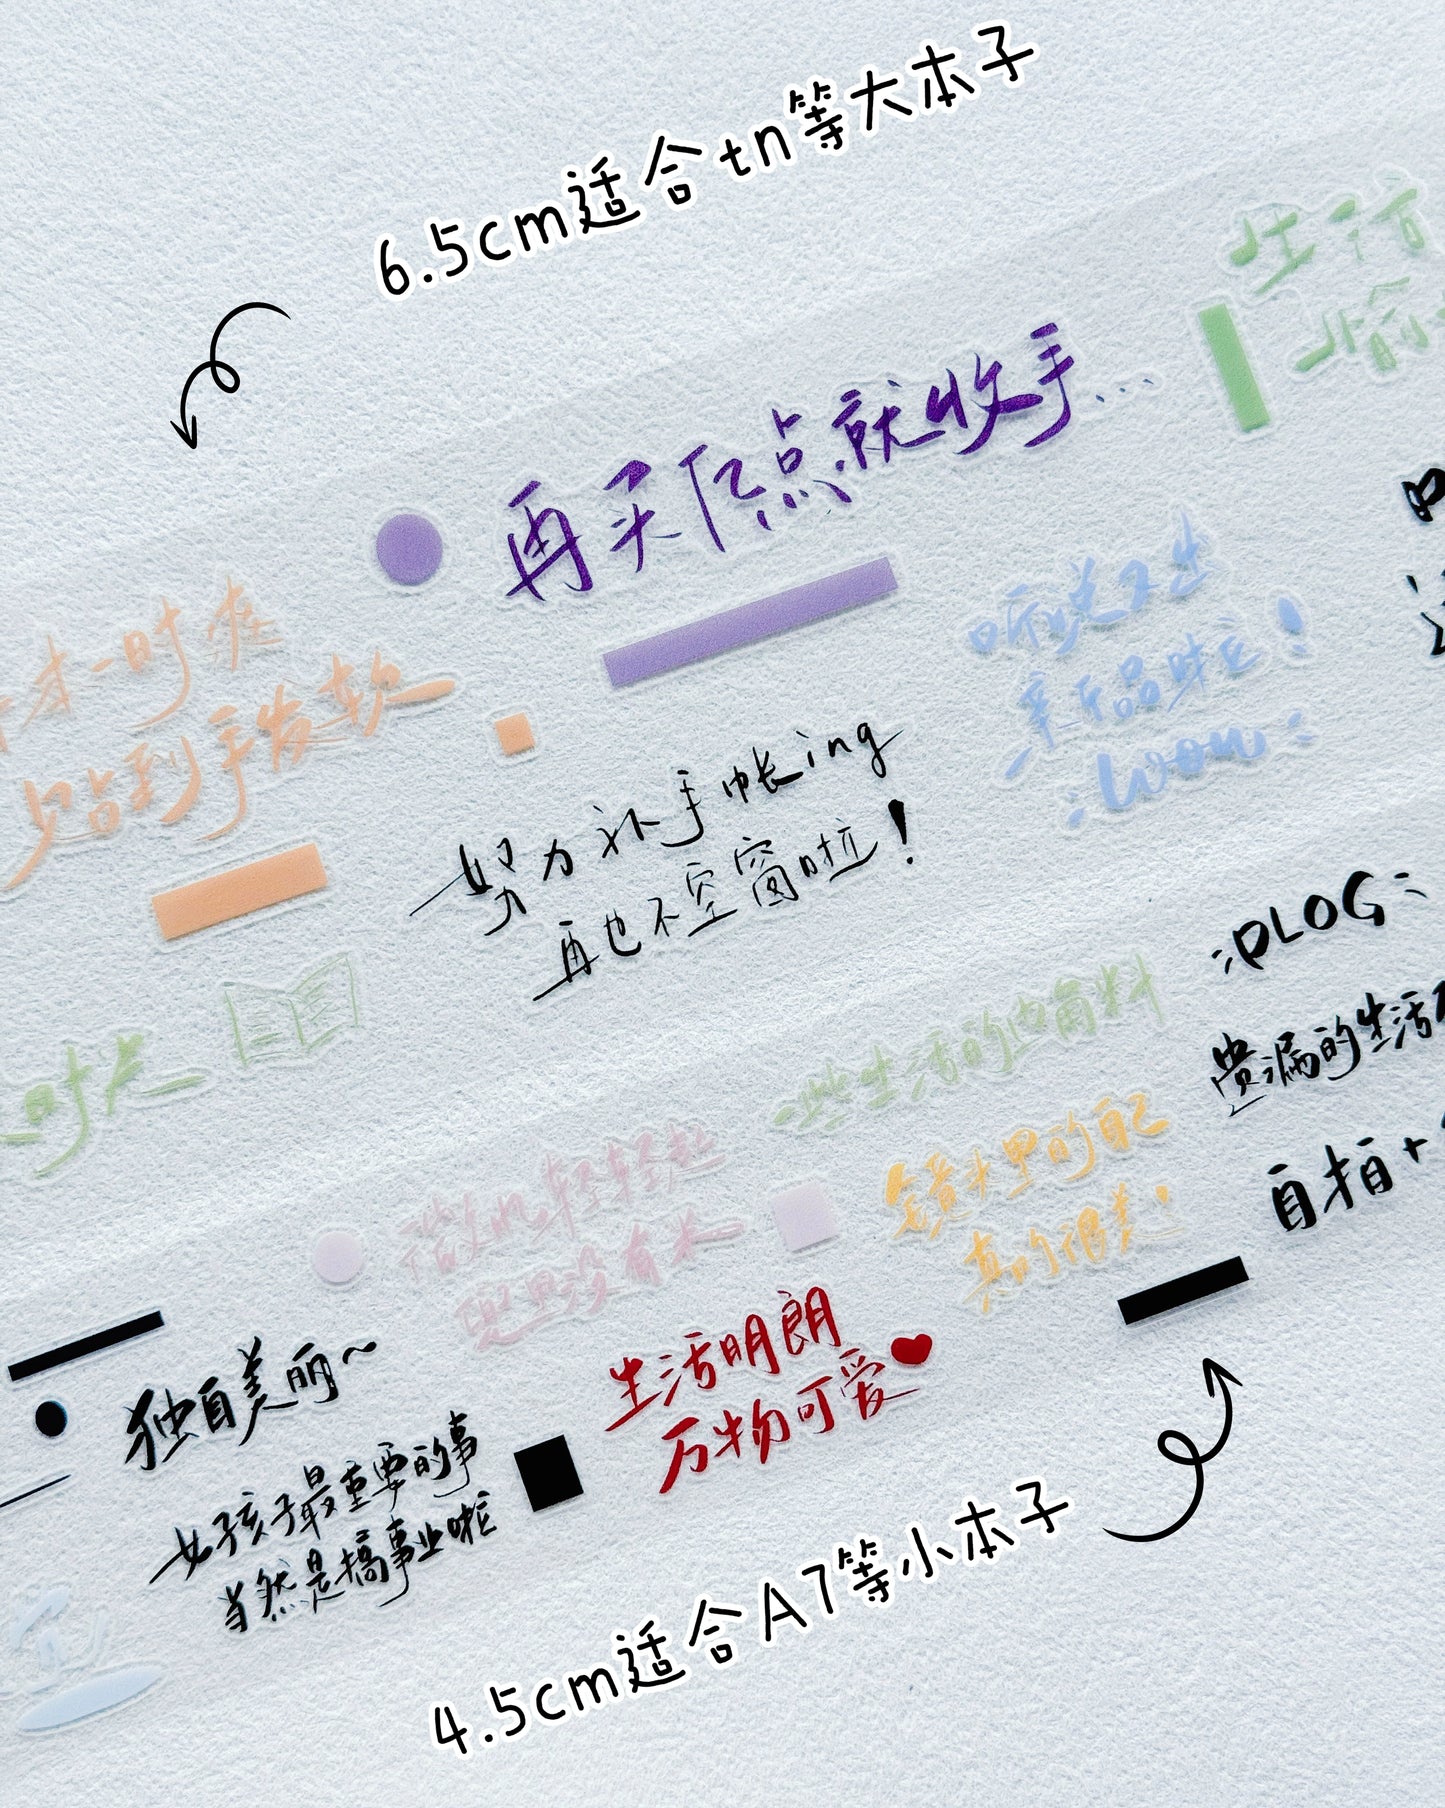 6.5cm适合tn等大本子
再买1亿点就收手...
一时爽
贴到手发软
听说又出
新品啦！
WOW
努力补手帐ing
再也不空窗啦！
时光
一些生活的边角料
PLOG
贵漏的生活
镜头里的自己
真的很美！
自拍+
微风轻轻起
生活明朗
万物可爱
独自美丽~
女孩子最重要的事
当然是搞事业啦
4.5cm适合A7等小本子